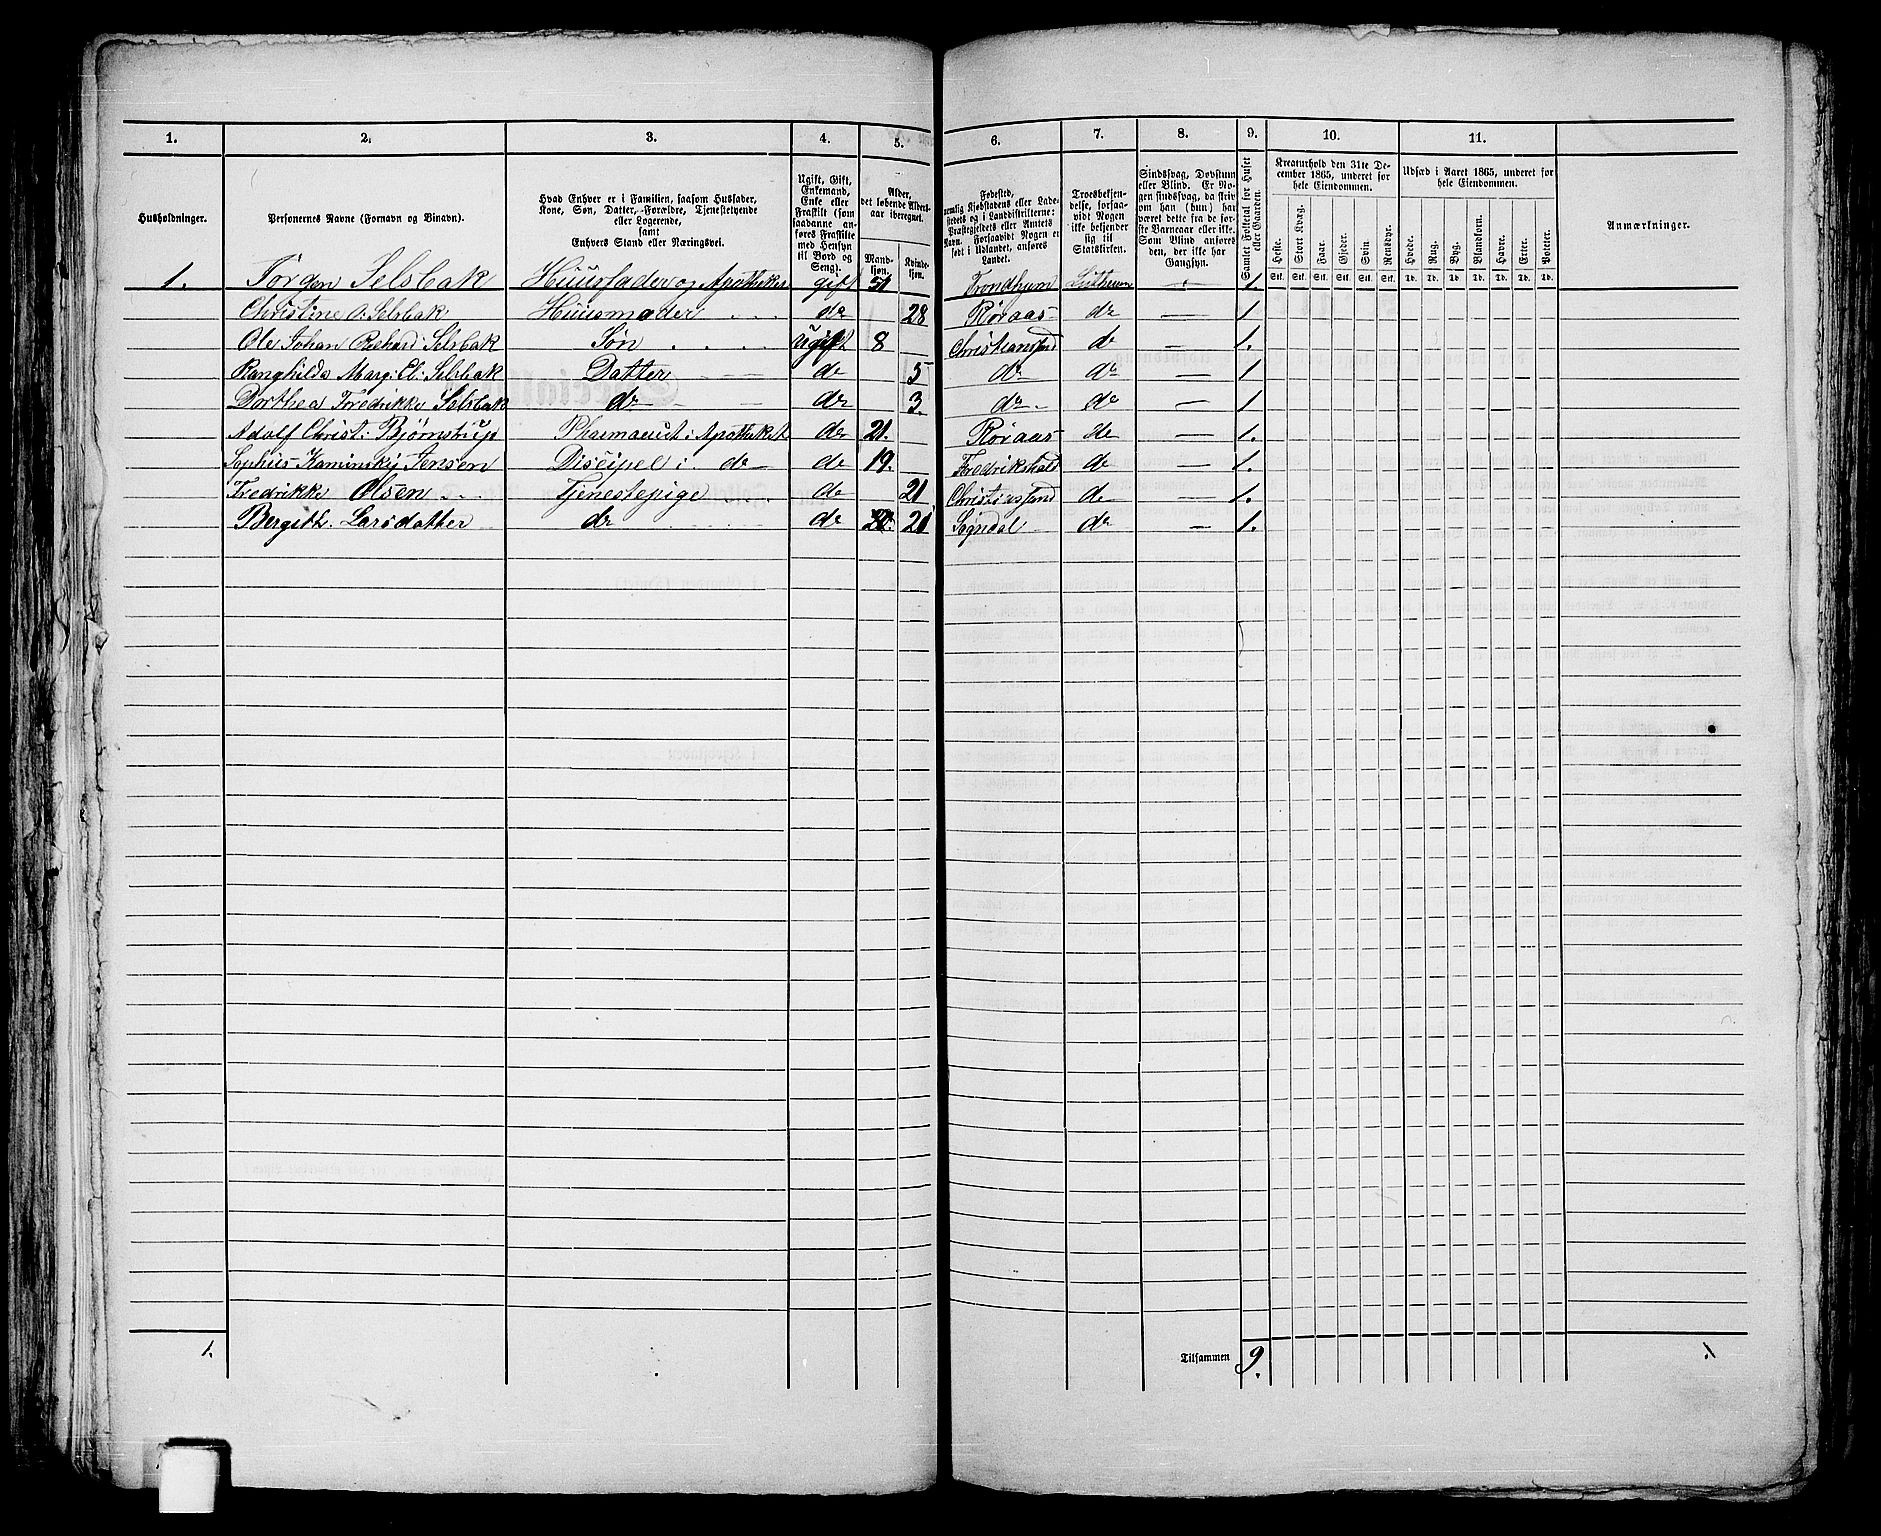 1. 2. 3. 4. 5. 6. 7. 8. 9. 10. 11.
Husholdninger.
Personernes Navne (Fornavn og Binavn).
Hvad Enhver er i Familien, saasom Husfader,
Kone, Søn, Datter, Forældre, Tjenestetyende
eller Logerende,
samt
Enhvers Stand eller Næringsvei.
Ugift, Gift,
Enkemand,
Enke eller
Fraskilt (som
saadanne an-
føres Fraskilte
med Hensyn
til Bord og
Seng).
Alder,
det løbende Alders-
aar iberegnet.
Mand-
kjøn.
Kvinde-
kjøn.
Fødested,
nemlig Kjøbstadens eller Lade-
stedets og i Landdistrikterne:
Præstegjeldets eller Amtets
Navn. Forsaavidt Nogen er
født i Udlandet, anføres
Landet.
Troesbekjen-
delse, forsaa-
vidt Nogen
ikke bekjender
sig til
Statskirken.
Sindssvag, Døvstum
eller Blind. Er No-
gen sindssvag, da skriv
om han (hun) har
været dette fra de før-
ste Barneaar eller ikke.
Som Blind anføres
den, der ikke har
Gangsyn.
Samlet Folketal for Huset
eller Gaarden.
Kreaturhold den 31te De-
cember 1865, underet for
hele Eiendommen.
Heste. Stort Kvæg. Faar. Gjeder. Svin. Rensdyr.
Stk. Stk. Stk. Stk. Stk. Stk.
Udsæd i Aaret 1865, underet for
hele Eiendommen.
Hvede. Rug. Byg. Blandkorn. Havre. Erter. Poteter.
Td. Td. Td. Td. Td. Td. Td.
Anmærkninger.
1. Jørgen Selsbak Huusfader og Apotheker gift 51 Trondhjem 1
Christine O. Selsbak Huusmoder do 28 Røraas do — 1
Ole Johan Richard Selsbak Søn ugift 8 Christiansand do — 1.
Ranghilda Marg: Cl: Selsbak Datter do 5 do do — 1
Dorthea Fredrikke Selsbak do do 3. do do — 1
Adolf Christ: Bjørnstrup Pharmaceut i Apotheket do 21. Røraas do — 1.
Sophus Kaminsky Jensen Discipel i do do 19. Fredrikshald do — 1.
Fredrikke Olsen Tjenestepige do 21 Christiansand do — 1.
Bergith. Larsdatter do do 21 Sogndal do — 1.
1. Tilsammen 9. 1